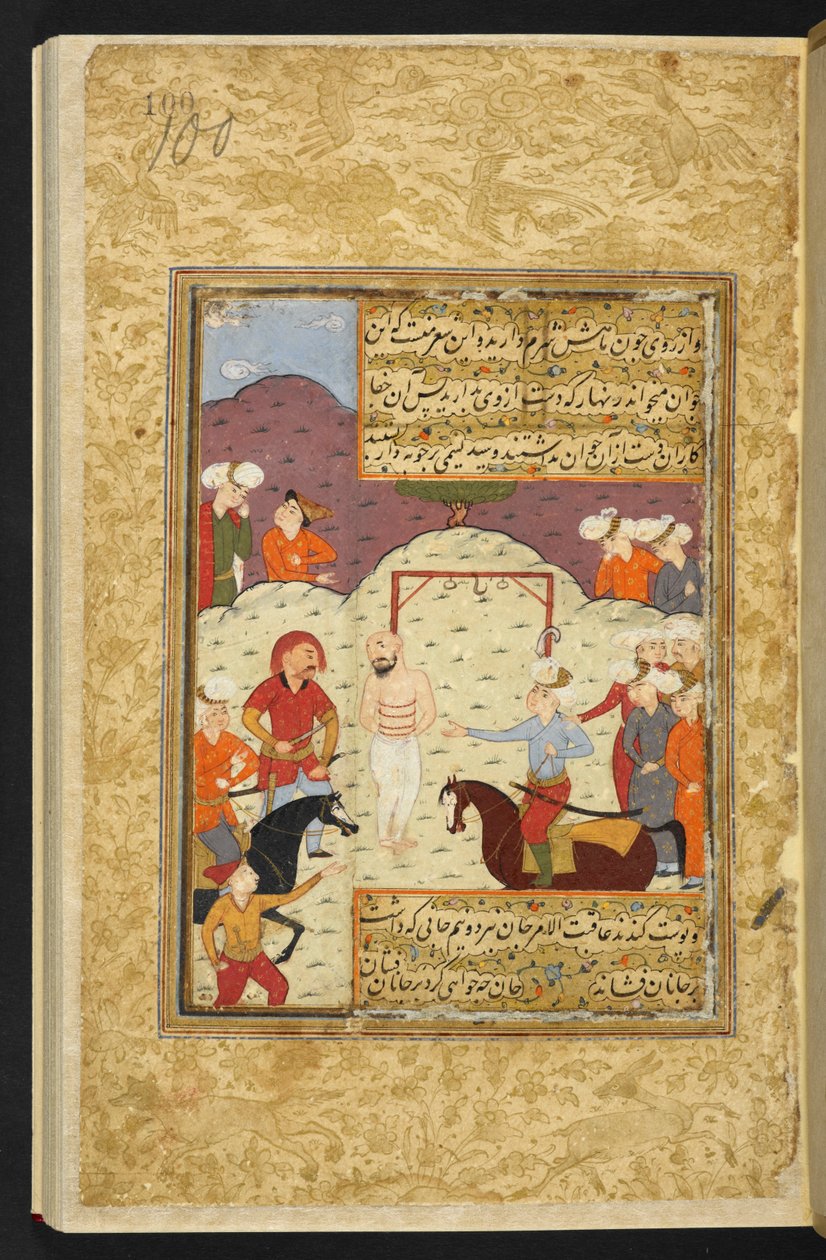 100
100
و از روی چون ماهش شرم دارید و این شعر منست که این
جوان میخواند زنهار که دست از وی بدارید پس آن جفا
کاران دست از آن جوان بداشتند و سید نسیمی بر چوبه دار بستند
و پوست کندند عاقبت الامر جان نبرد و نیم جانی که داشت
بر جانان فشاند جان چه خواهی کرد بر جانان فشان